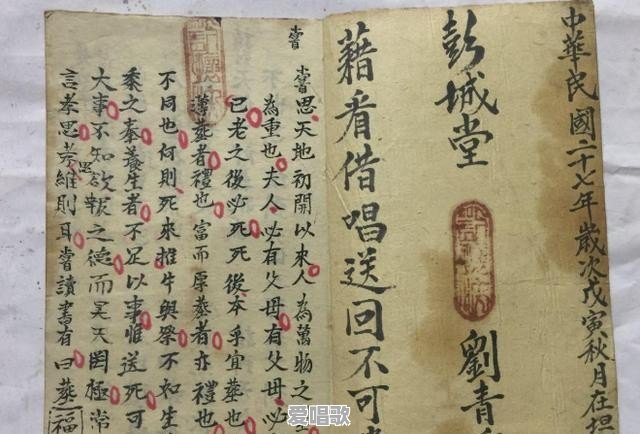 中華民國二十七年歲次戊寅秋月在坦
彭城堂
劉青
藉看借唱送回不可
嘗
嘗思天地初開以來人為萬物之
為重也夫人必有父母有父母必
已老之後必死死後本乎宜葬也
葬者禮也富而厚葬者亦禮也
不同也何則死來推牛與祭不如生
黍之奉養生者不足以事惟送死可
大事不知欲報之德而昊天罔極常
思
言孝思孝維則耳嘗讀書有曰葬
福
爱唱歌